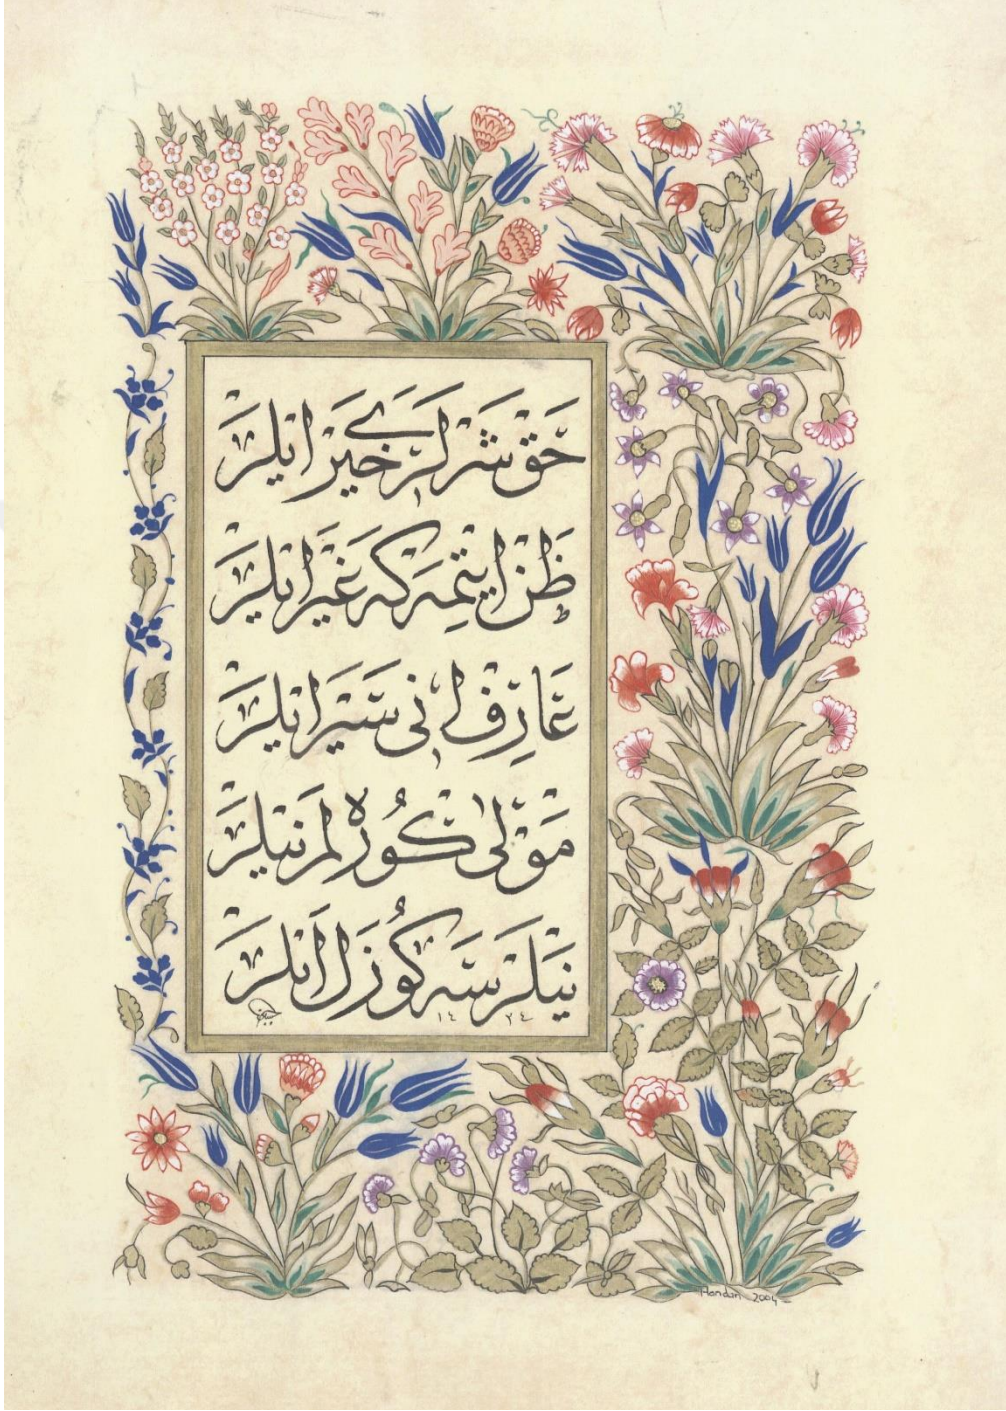 حَق شَرلَرِى خَيَر ايلَر
ظَن ايتمِه كه غَيَر ايلَر
عَارِف انى سَيَر ايلَر
مَولى كُوره لم نيلَر
نيلَرسه كُوزل ايلَر
١٤٢٤
Handan 2004